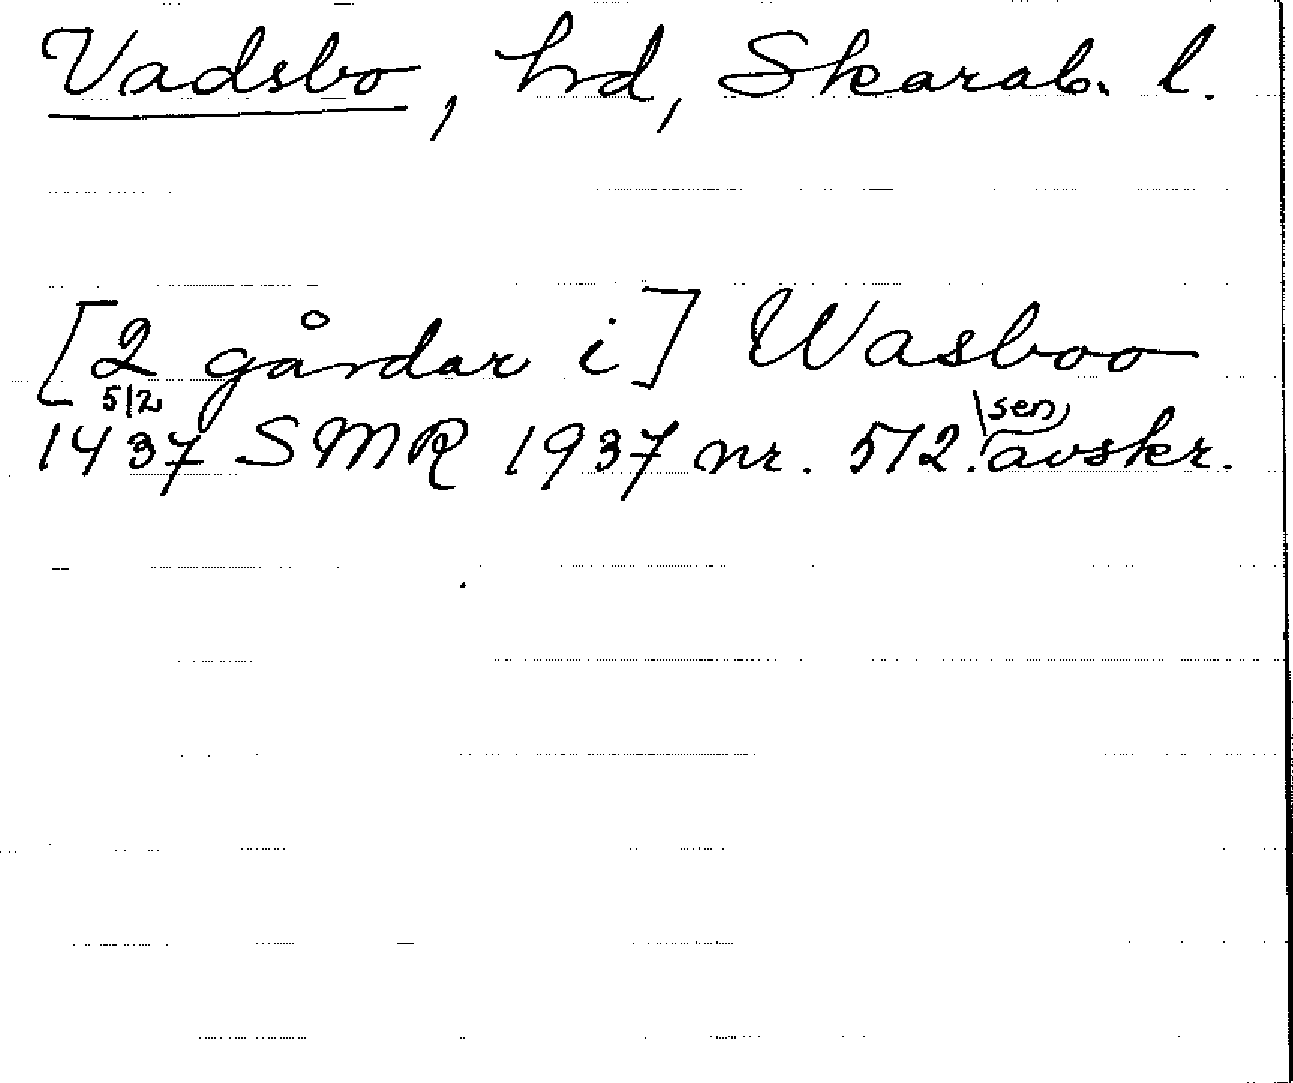 Vadsbo, hd, Skarab. l.
[2 gårdar i] Wasboo
5/2
sen
1437 SMR 1937 nr. 572. avskr.